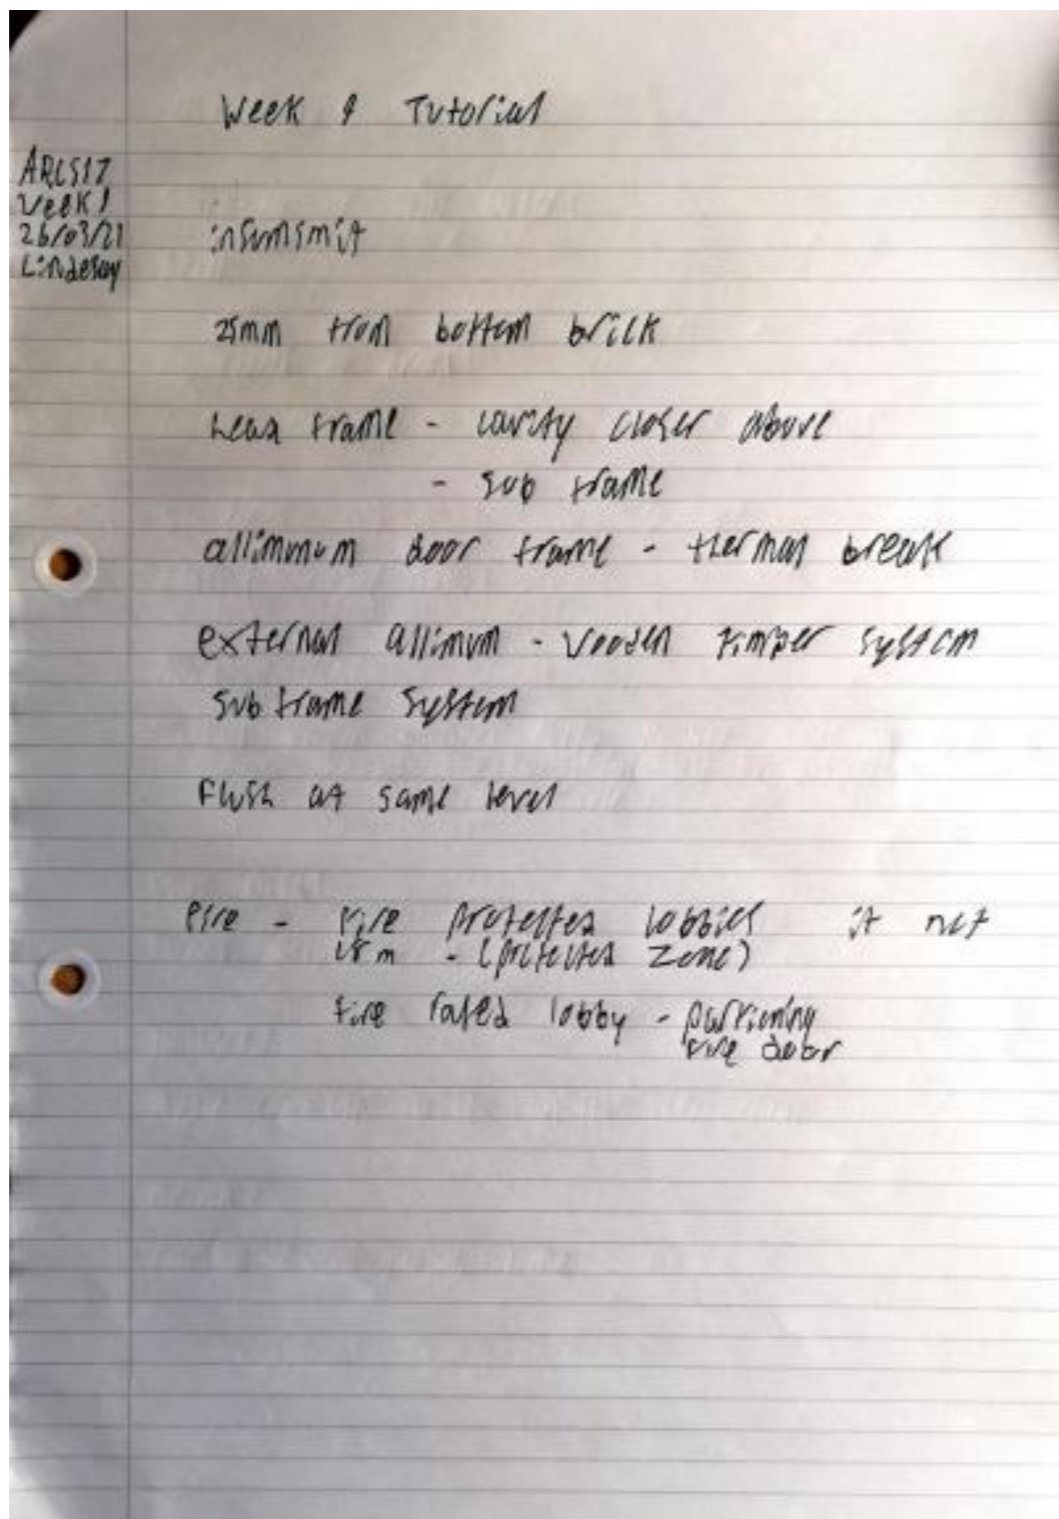 Week 9 Tutorial
ARC517
Week 9
26/03/21
Lindesay
25mm from bottom brick
head frame - cavity closer above
- sub frame
alliminum door frame - thermal break
external allimum - wooden timber system
sub frame system
Flush at same level
Fire - fire protected lobbies if not
18m - (protected zone)
fire rated lobby -
fire door